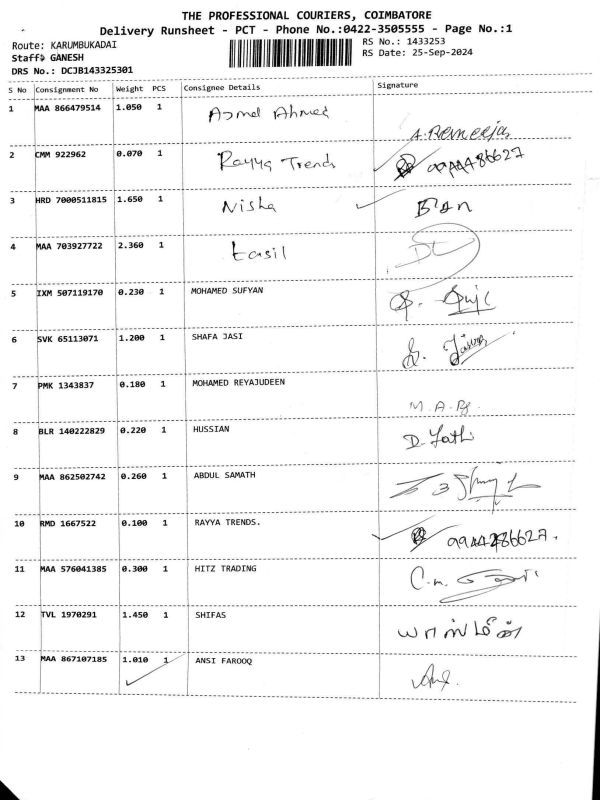 THE PROFESSIONAL COURIERS, COIMBATORE
Delivery Runsheet - PCT - Phone No.:0422-3505555 - Page No.:1
Route: KARUMBUKADAI RS No.: 1433253
Staff: GANESH RS Date: 25-Sep-2024
DRS No.: DCJB143325301
S No Consignment No Weight PCS Consignee Details Signature
1 MAA 866479514 1.050 1 Ajmal Ahmed
2 CMM 922962 0.070 1 Rayya Trends 9944286627
3 HRD 7000511815 1.650 1 Nisha
4 MAA 703927722 2.360 1 Fasil
5 IXM 507119170 0.230 1 MOHAMED SUFYAN
6 SVK 65113071 1.200 1 SHAFA JASI
7 PMK 1343837 0.180 1 MOHAMED REYAJUDEEN
8 BLR 140222829 0.220 1 HUSSIAN D. Fathi
9 MAA 862502742 0.260 1 ABDUL SAMATH
10 RMD 1667522 0.100 1 RAYYA TRENDS. 9944286627.
11 MAA 576041385 0.300 1 HITZ TRADING
12 TVL 1970291 1.450 1 SHIFAS யாஸ்மீன்
13 MAA 867107185 1.010 1 ANSI FAROOQ